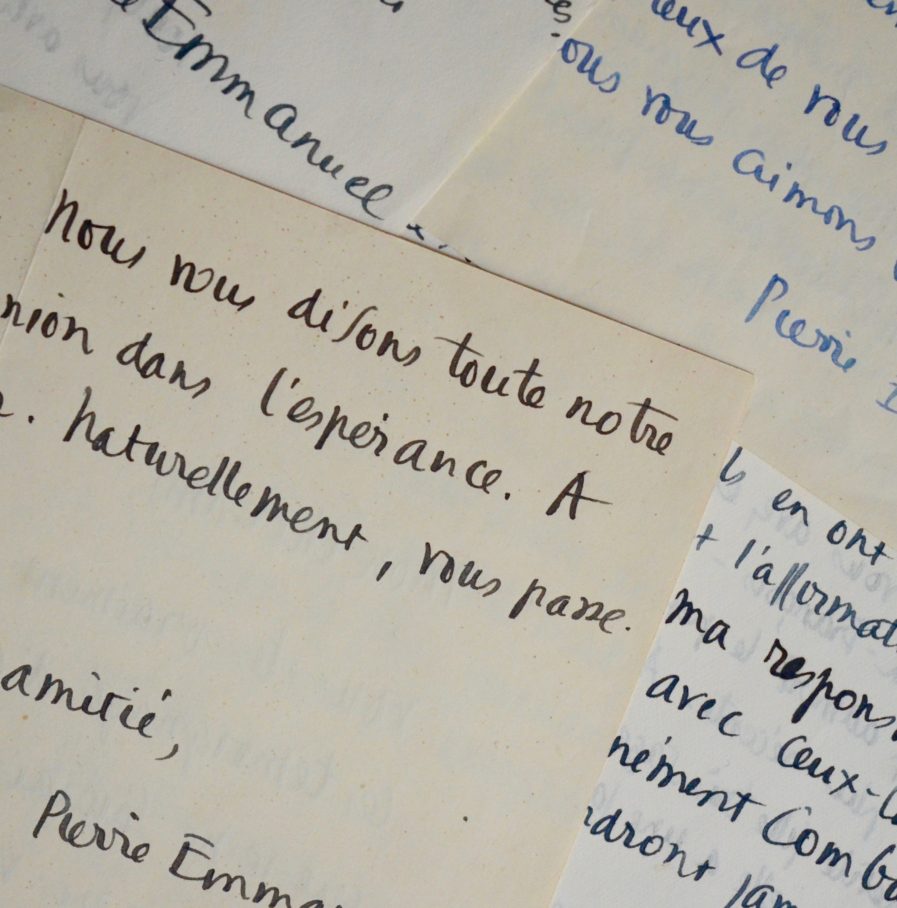 Emmanuel
eux de vous
ous vous aimons
Pierre
Nous vous disons toute notre
nion dans l'espérance. A
. Naturellement, vous passe.
amitié,
Pierre Emma
en ont
t l'affirmat
ma respons
avec ceux-l
nément Comba
ndront jam